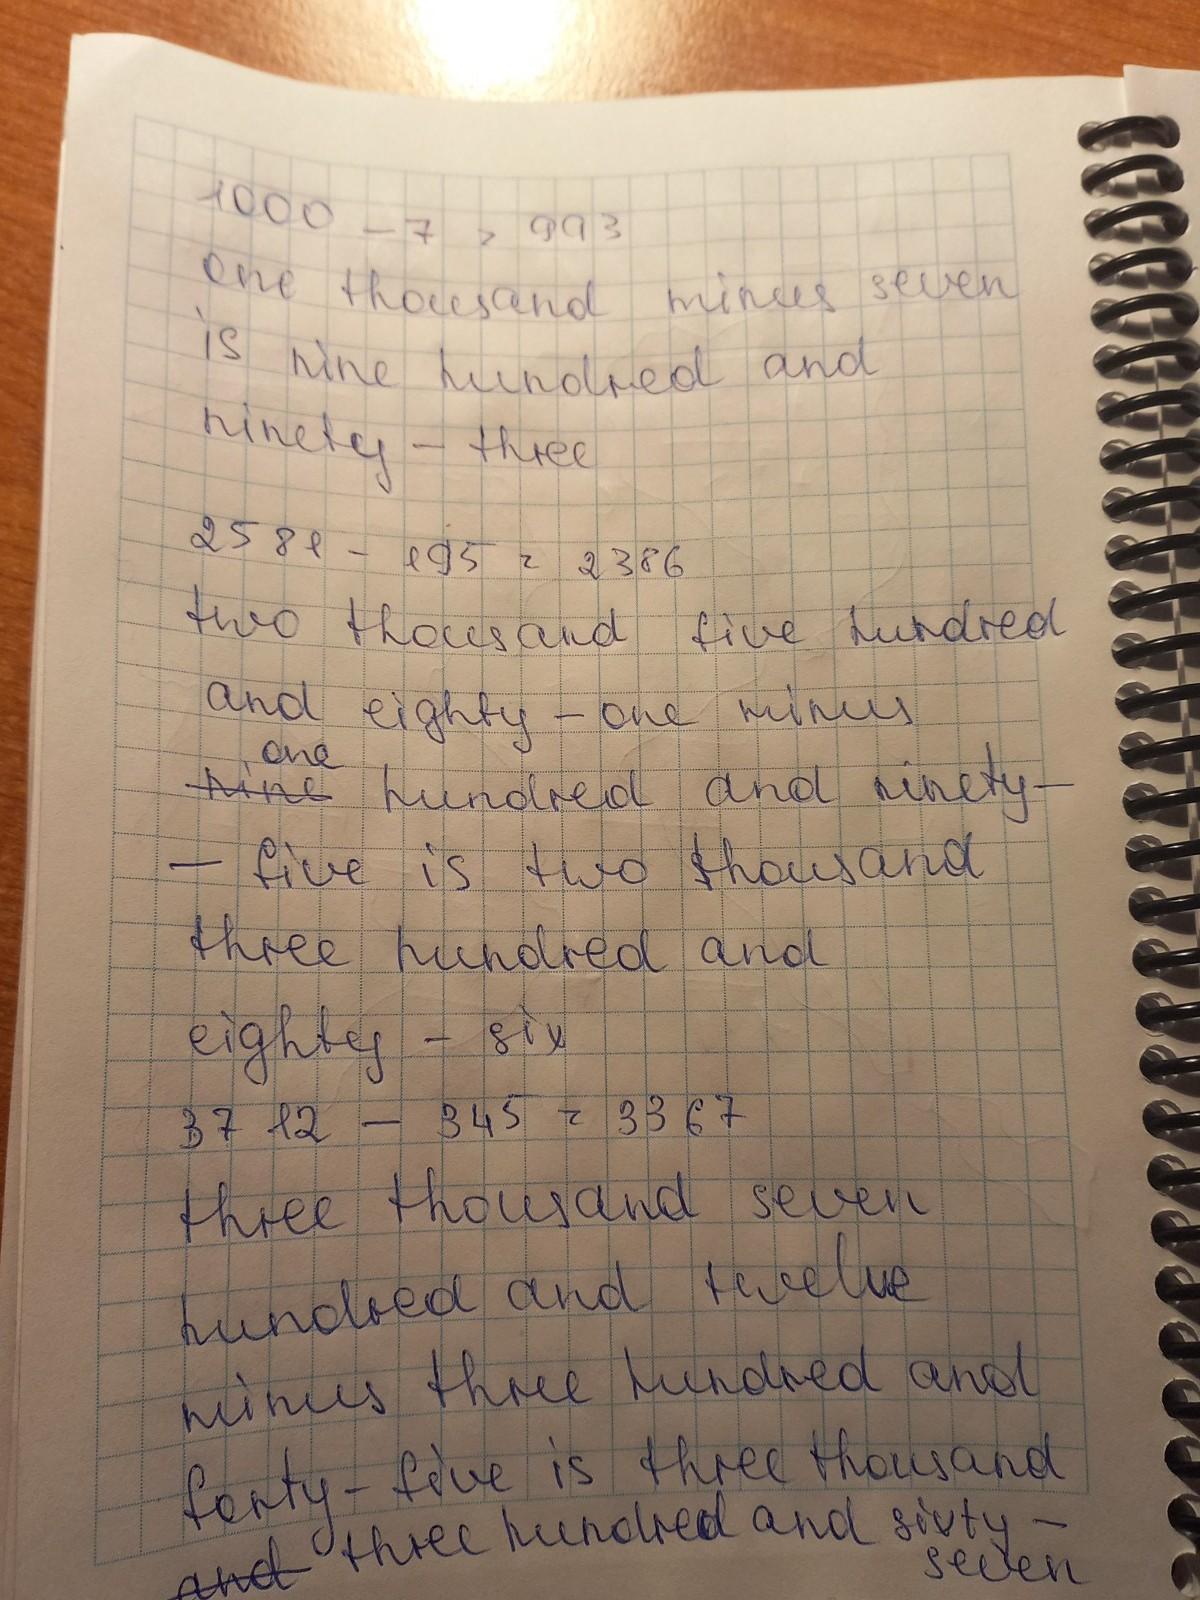 1000 - 7 = 993
one thousand minus seven
is nine hundred and
ninety - three
2581 - 195 = 2386
two thousand five hundred
and eighty - one minus
one
nine hundred and ninety -
- five is two thousand
three hundred and
eighty - six
3712 - 345 = 3367
three thousand seven
hundred and twelve
minus three hundred and
forty - five is three thousand
and three hundred and sixty -
seven